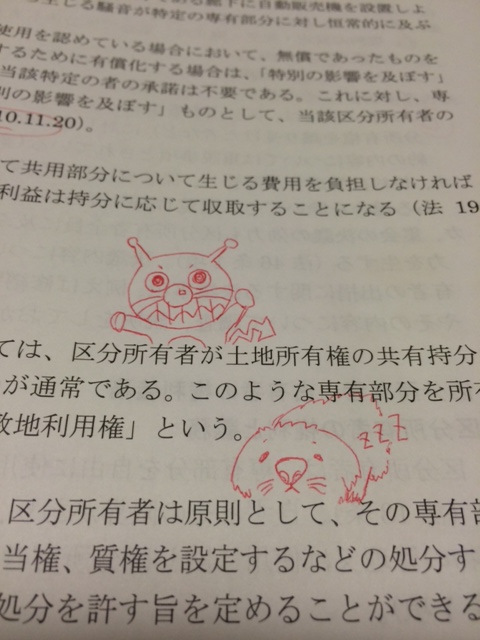 る廊下に自動販売機を設置しよ
生じる騒音が特定の専有部分に対し恒常的に及ぶ
使用を認めている場合において、無償であったものを
するために有償化する場合は、「特別の影響を及ぼす」
当該特定の者の承諾は不要である。これに対し、専
別の影響を及ぼす」ものとして、当該区分所有者の
10.11.20)。
て共用部分について生じる費用を負担しなければ
利益は持分に応じて収取することになる(法 19
ては、区分所有者が土地所有権の共有持分
が通常である。このような専有部分を所有
敷地利用権」という。
zzz
区分所有者は原則として、その専有部
当権、質権を設定するなどの処分す
処分を許す旨を定めることができる